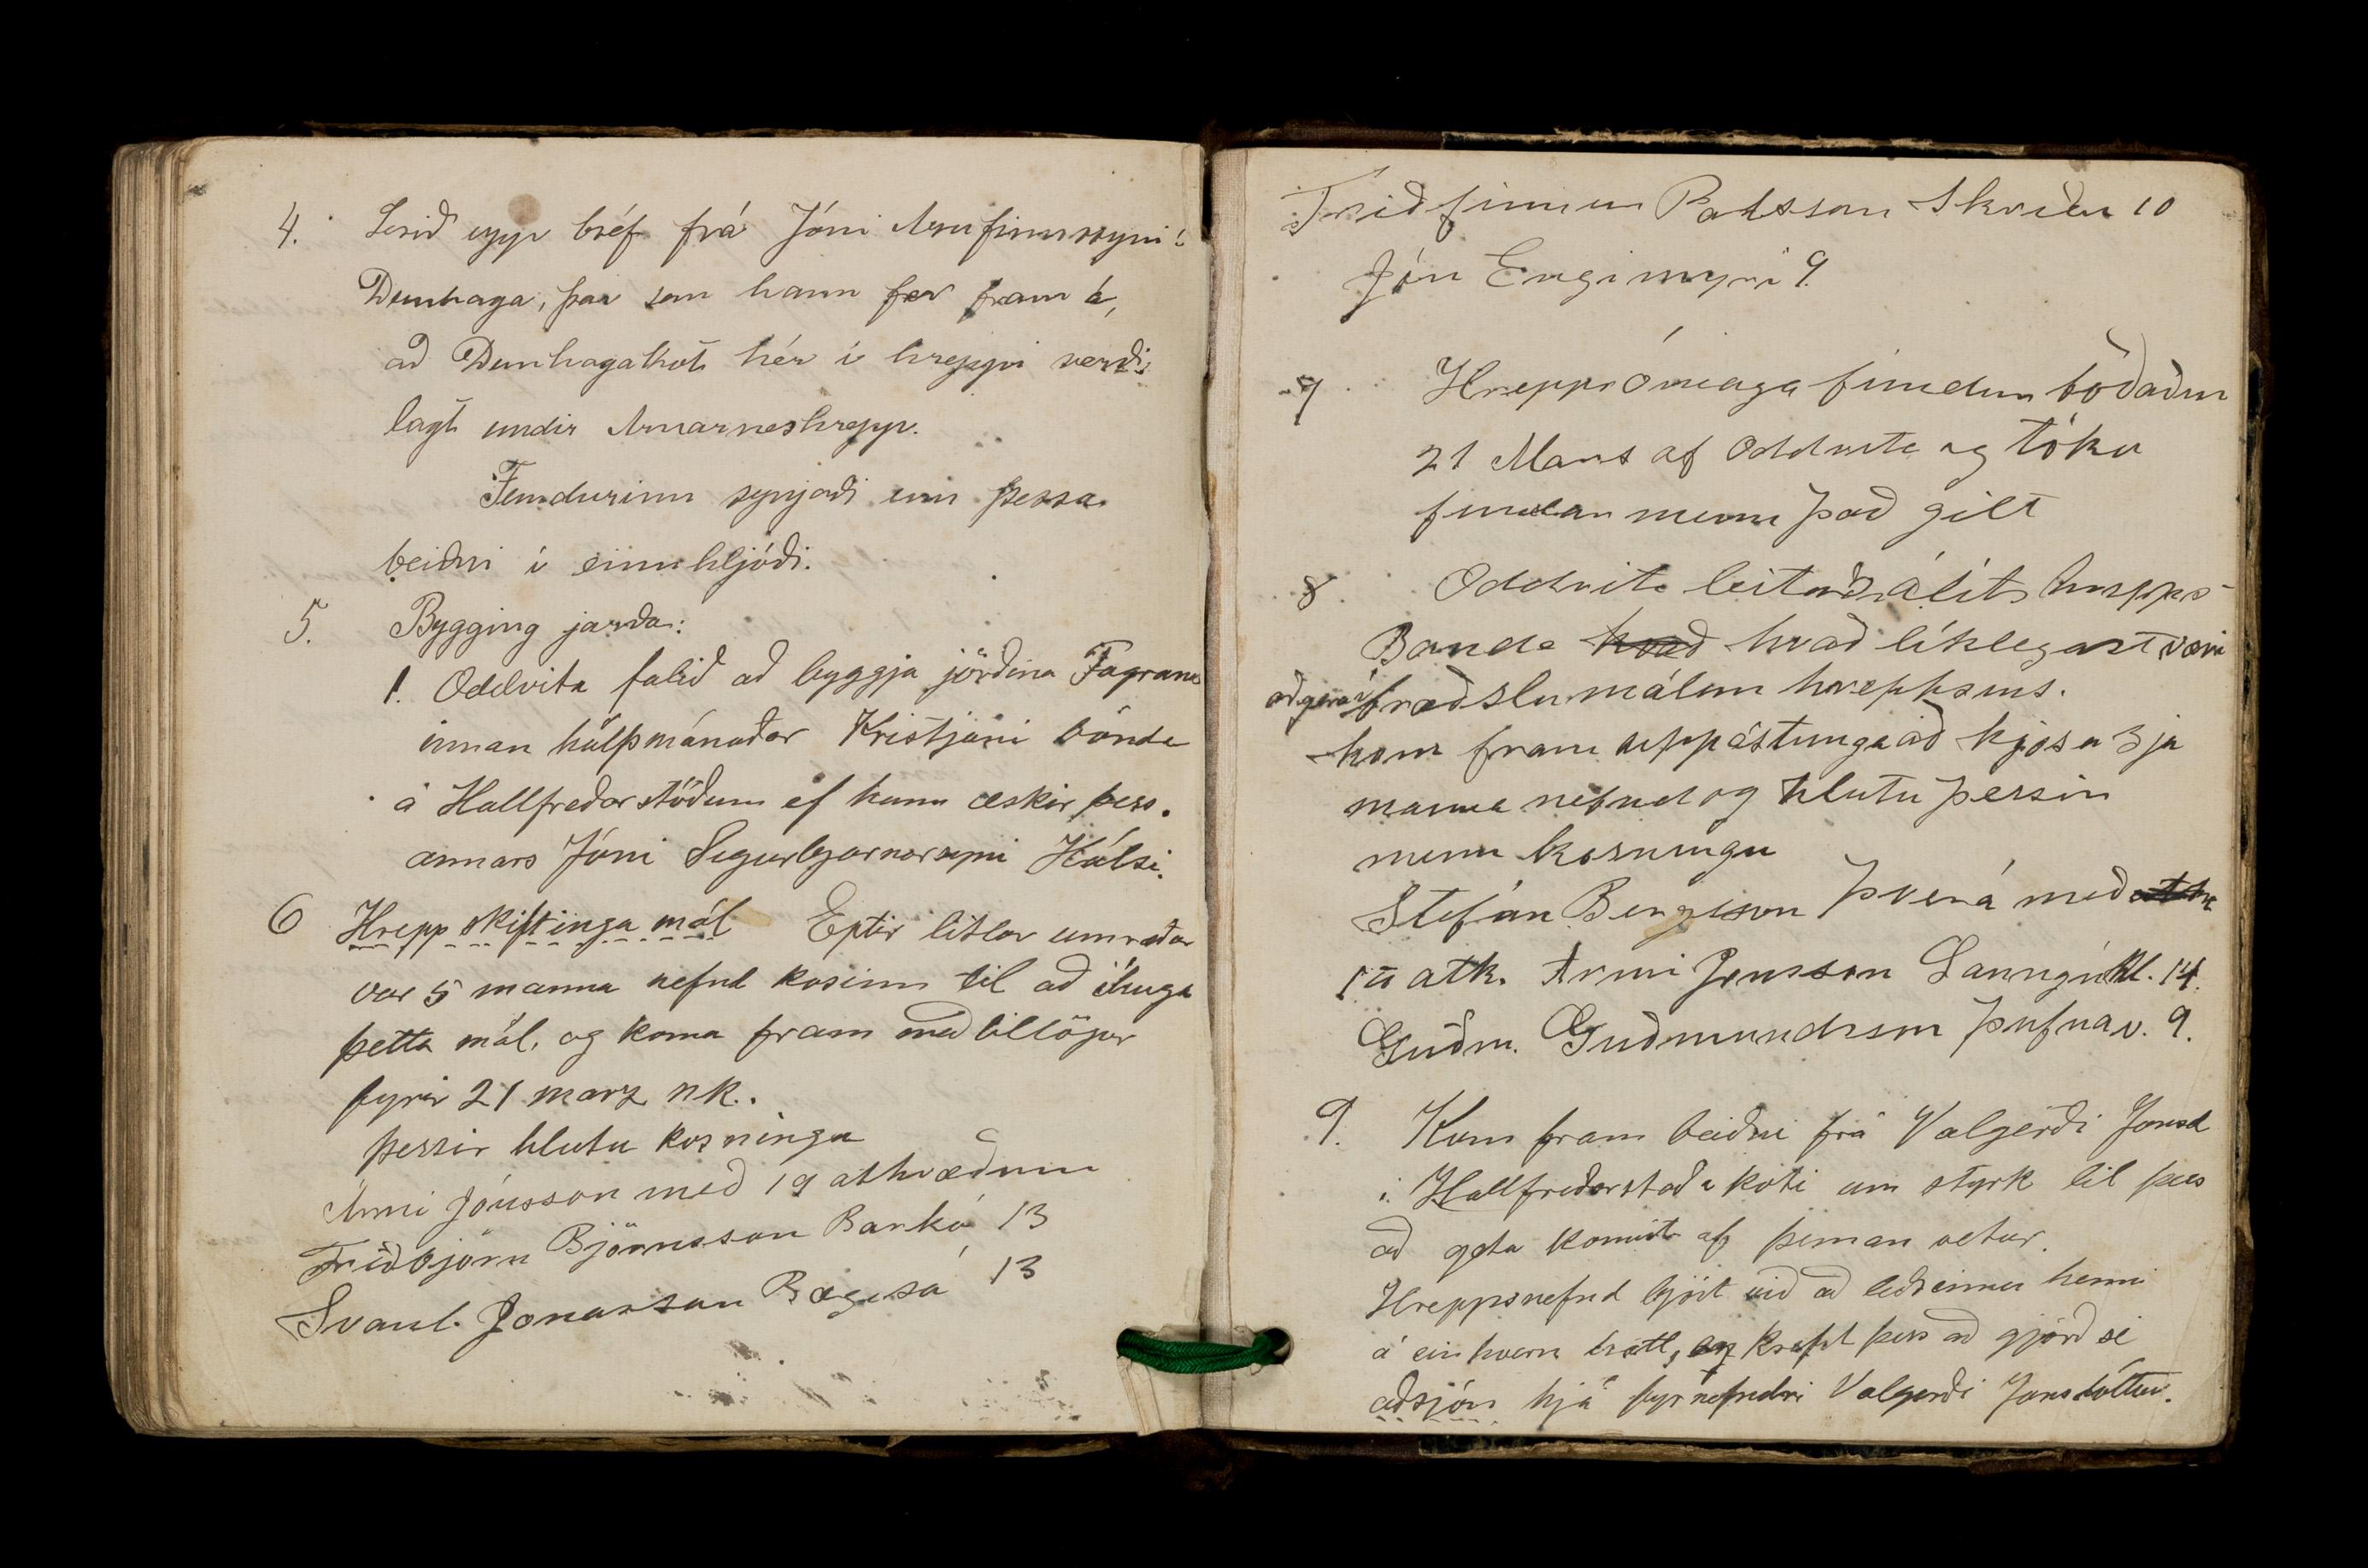 4. Lesið upp bréf frá Jóni Arnfinnssyni í
Dunhaga, þar sem hann fer fram á,
að Dunhagakot hér í hreppi verði
lagt undir Arnarneshrepp.
Fundurinn synjaði um þessa
beiðni í einu hljóði.
5. Bygging jarða:
1. Oddvita falið að byggja jörðina Fagranes
innan hálfsmánaðar Kristjáni bónda
á Hallfreðarstöðum ef hann æskir þess.
annars Jóni Sigurbjarnarsyni Hálsi.
6 Hreppskiftinga mál Eptir litlar umræðar
var 5 manna nefnd kosinn til að íhuga
þetta mál, og koma fram með tillögur
fyrir 21 marz nk..
þessir hlutu kosningu
Árni Jónsson með 19 athvæðum
Friðbjörn Björnsson Barká 13
Svanl. Jonasson Bægisá 13
Friðfinnur Palsson Skriðu 10
Jón Engimyri 9.
7 Hreppsómaga fundur böðaður
21 Mars af Oddvita og tóku
fundar menn það gilt
8 Oddviti leitaði álits hrepps-
Bænda hvað hvað líklegast væri
að gera í fræðslumálum hreppsins.
kom fram uppástunga að kjósa 3ja
manna nefnd og hlutu þessir
menn kosningu
Stefán Bergsson Þverá með atk
15 atk. Árni Jonsson Lönguhl. 14.
Guðm. Guðmundsson Þufnav. 9.
9. Kom fram beiðni frá Valgerði Jonsd
í Hallfreðarstaðakoti um styrk til þess
að geta komist af þennan vetur.
Hreppsnefnd bjóst við að leðeinna henni
á einhvern hátt, en krafðist þess að gjörð sé
aðsjón hjá fyrnefndri Valgerði Jonsdóttur.